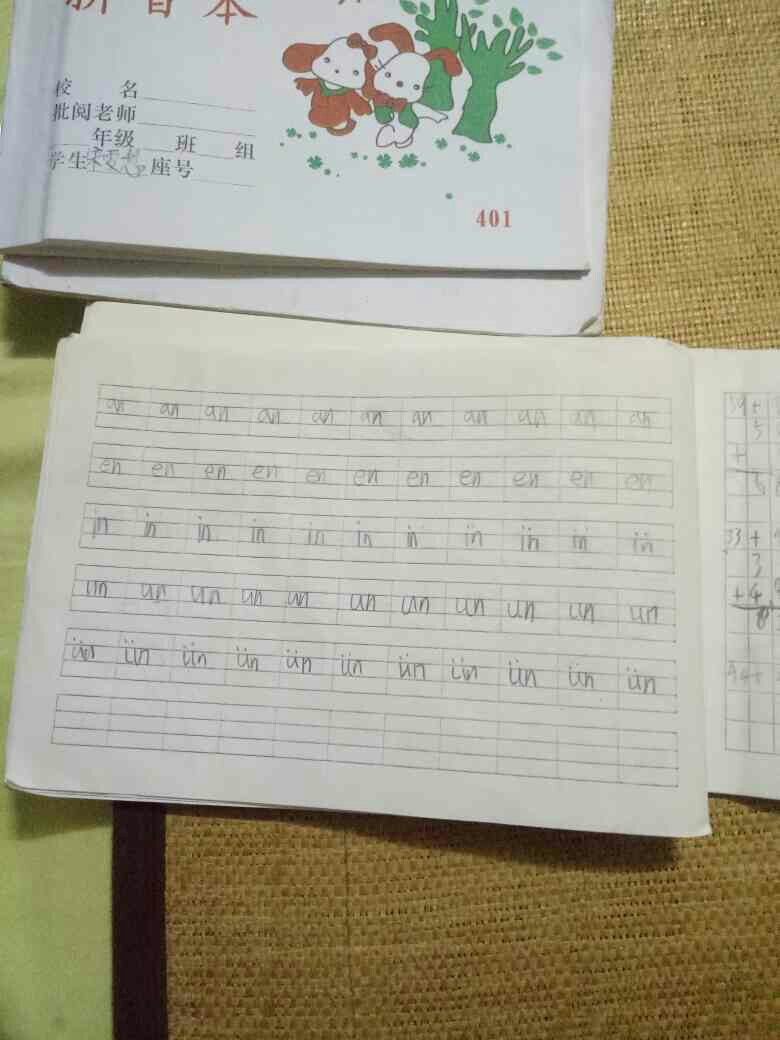 拼音本
校 名
批阅老师
年级 班 组
学生 座号
401
an an an an an an an an an an an
en en en en en en en en en en en
in in in in in in in in in in in
un un un un un un un un un un un
ün ün ün ün ün ün ün ün ün ün ün
39+
3
+
33+
3
+4
8